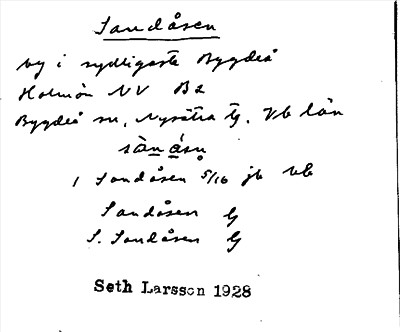 Sandåsen
by i sydligaste Bygdeå
Holmön NV B2
Bygdeå sn, Nysätra tg. Vb län
sànásn̥
1 Sandåsen 5/16 jb vb
Sandåsen G
S. Sandåsen G
Seth Larsson 1928